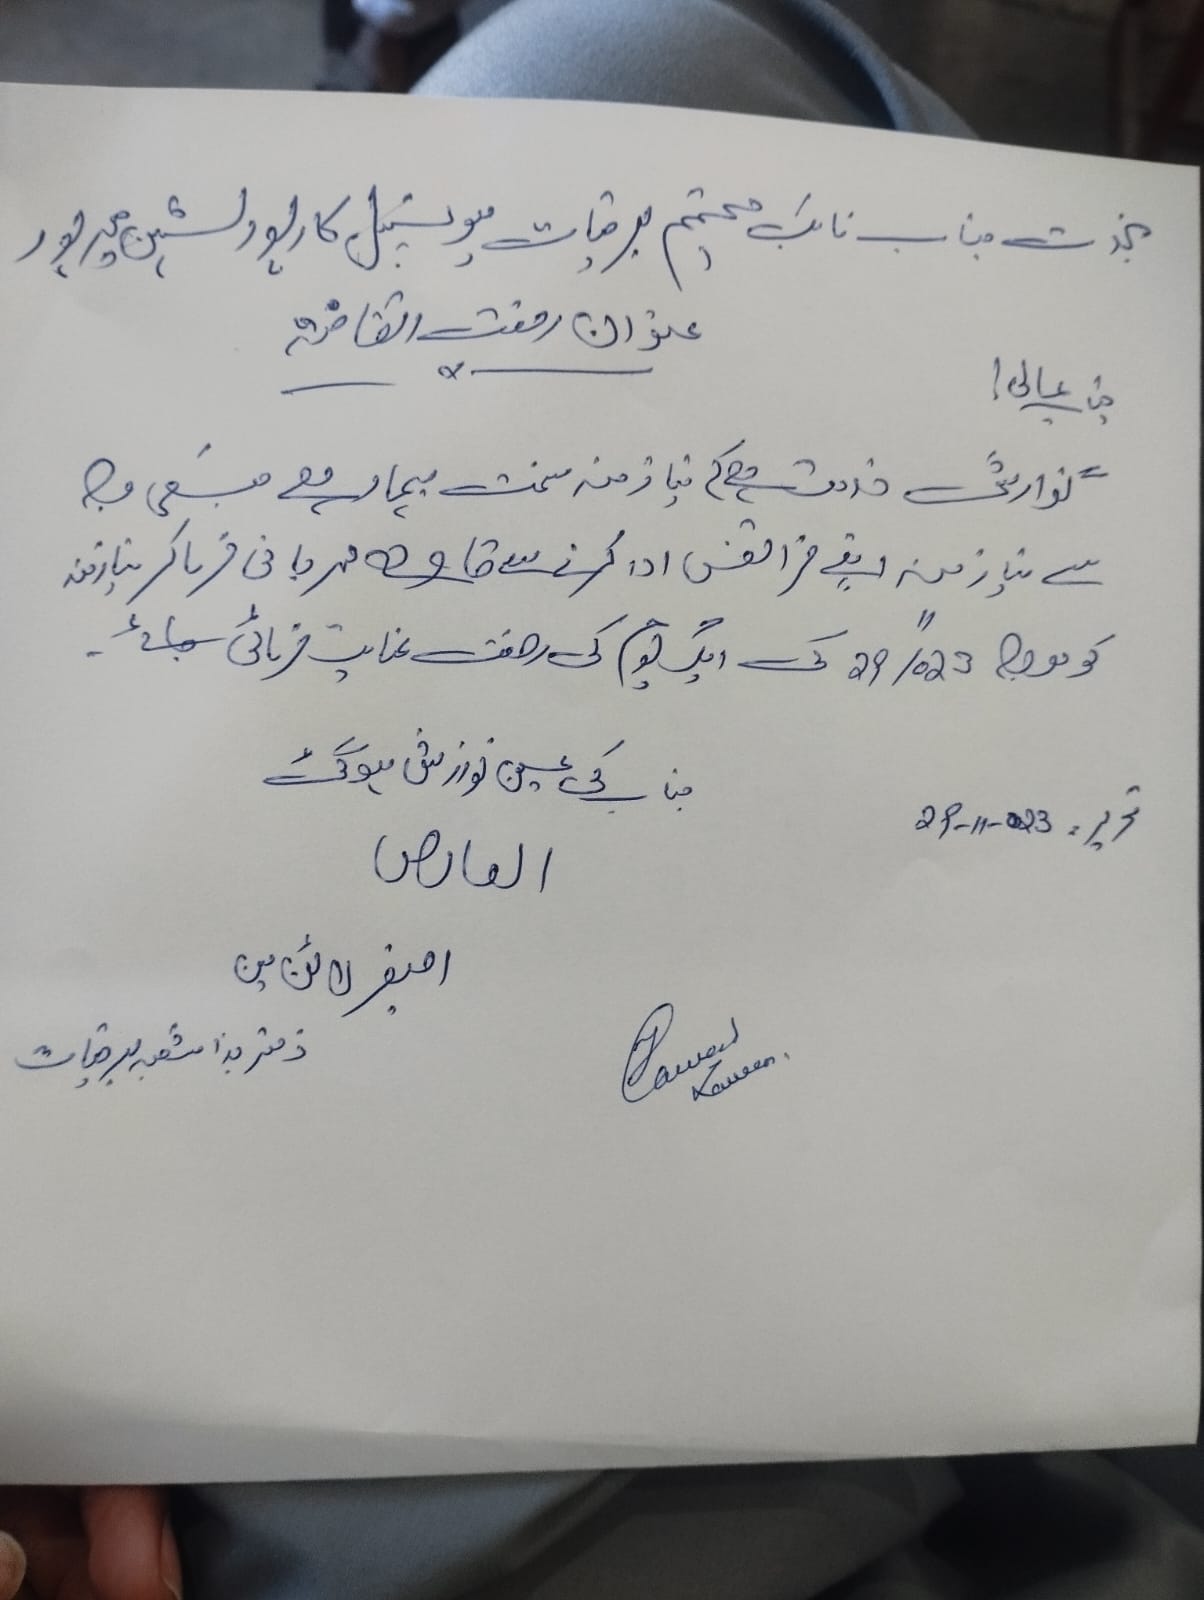 بخدمت جناب نائب مہتمم برقیات میونسپل کارپوریشن میرپور
عنوان رخصت اتفاقیہ
جناب عالی!
گزارش خدمت ہے کہ نیازمند سخت بیمار ہے جسکی وجہ
سے نیازمند اپنے فرائض ادا کرنے سے قاصر ہے مہربانی فرما کر نیازمند
کو مورخہ 29/11/023 کی ایک یوم کی رخصت عنایت فرمائی جائے۔
جناب کی عین نوازش ہوگی
تحریر: 29-11-023
العارض
لائن مین
دفتر ہذا شعبہ برقیات